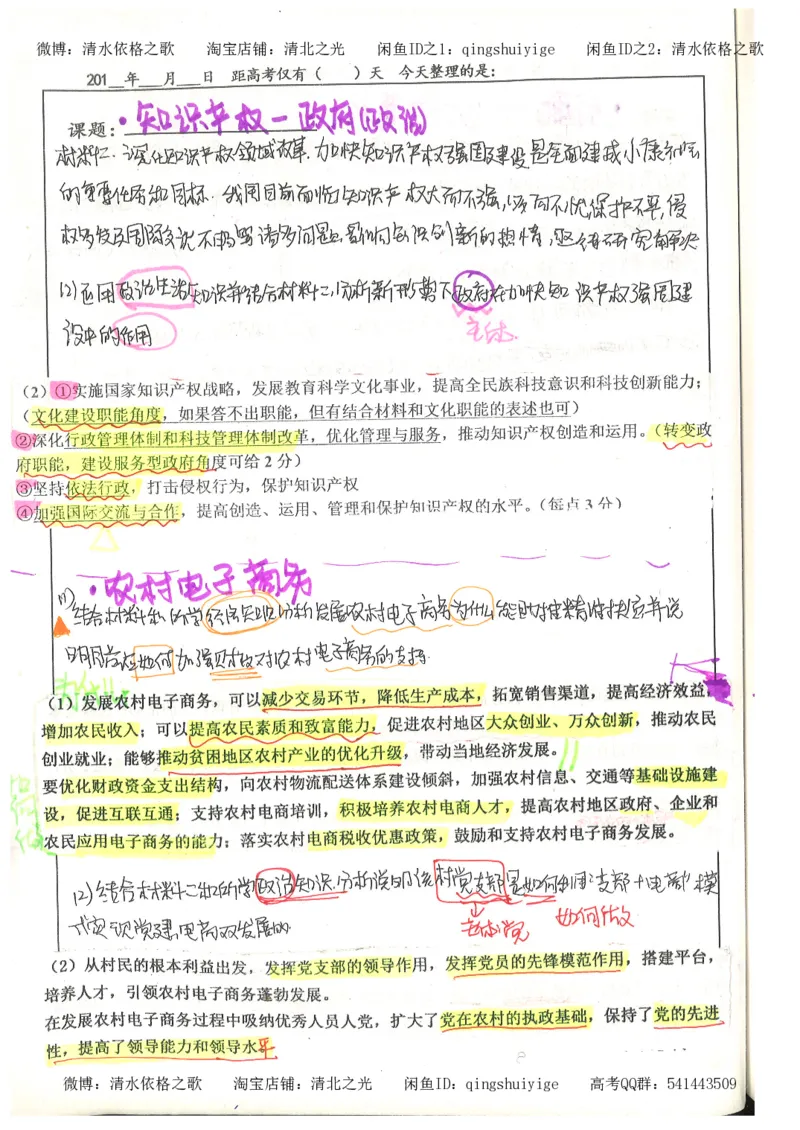 微博：清水依格之歌 淘宝店铺：清北之光 闲鱼ID之1：qingshuiyige 闲鱼ID之2：清水依格之歌
201__年___月___日 距高考仅有（ ）天 今天整理的是：
课题：·知识产权—政府(政治)
材料二、深化知识产权领域改革，加快知识产权强国建设是全面建成小康社会
的重要任务和目标。我国目前面临知识产权大而不强，多而不优，保护不严，侵
权多发及国际 不 等诸多问题，影响 创新的热情，亟待研究解决
(2)运用政治生活知识并结合材料二，分析新形势下政府在加快知识产权强国建
设中的作用
主体
（2）①实施国家知识产权战略，发展教育科学文化事业，提高全民族科技意识和科技创新能力；
（文化建设职能角度，如果答不出职能，但有结合材料和文化职能的表述也可）
②深化行政管理体制和科技管理体制改革，优化管理与服务，推动知识产权创造和运用。（转变政
府职能，建设服务型政府角度可给2分）
③坚持依法行政，打击侵权行为，保护知识产权
④加强国际交流与合作，提高创造、运用、管理和保护知识产权的水平。（每点3分）
·农村电子商务
(1)
结合材料一和所学经济知识分析发展农村电子商务为什么能助推精准扶贫并说
明国家应如何加强财政对农村电子商务的支持.
为什么：
（1）发展农村电子商务，可以减少交易环节，降低生产成本，拓宽销售渠道，提高经济效益，
增加农民收入；可以提高农民素质和致富能力，促进农村地区大众创业、万众创新，推动农民
创业就业；能够推动贫困地区农村产业的优化升级，带动当地经济发展。
要优化财政资金支出结构，向农村物流配送体系建设倾斜，加强农村信息、交通等基础设施建
设，促进互联互通；支持农村电商培训，积极培养农村电商人才，提高农村地区政府、企业和
农民应用电子商务的能力；落实农村电商税收优惠政策，鼓励和支持农村电子商务发展。
如何做
(2)结合材料二和所学政治知识.分析说明该村党支部是如何利用"支部+电商"模
式实现党建，电商双发展的
主体党 如何做
（2）从村民的根本利益出发，发挥党支部的领导作用，发挥党员的先锋模范作用，搭建平台，
培养人才，引领农村电子商务蓬勃发展。
在发展农村电子商务过程中吸纳优秀人员入党，扩大了党在农村的执政基础，保持了党的先进
性，提高了领导能力和领导水平
微博：清水依格之歌 淘宝店铺：清北之光 闲鱼ID：qingshuiyige 高考QQ群：541443509